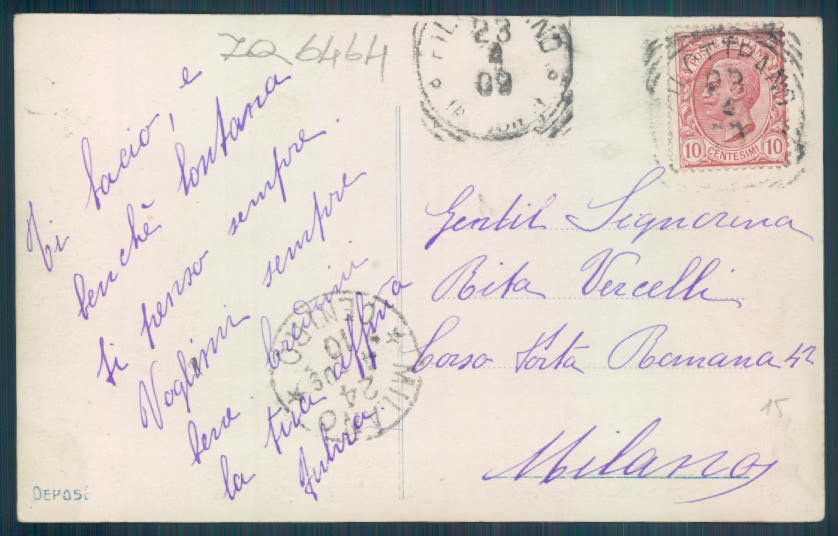 ZQ 6464
23
4
09
POSTE ITALIANE
10 CENTESIMI 10
23
4
Ti bacio, e
benchè lontana
ti penso sempre.
Voglimi sempre
bene. bregimi
la tua aff.ma
Gentil Signorina
Rita Vercelli
Corso Porta Romana 42
Milano
MILANO
CENTRO
24
10
15
DEPOSÉ